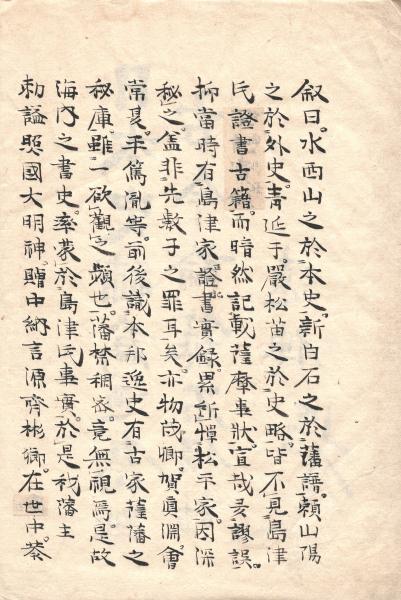 叙曰。水西山之於本史。新白石之於藩譜。頼山陽
之於外史。青延于。嚴松苗之於史略。皆不見島津
氏證書古籍。而暗然記載薩摩事状。宜哉爰謬誤。
抑當時有島津家證書實録。累所憚松平家。因深
秘之。盖非先数子之罪耳矣。亦物茂卿。賀真淵。會
常夏。平篤胤等。前後識本邦逸史有古家薩藩之
秘庫。雖一欲觀之頻也。藩禁稠密。竟無視焉。是故
海内之書史。率蒙於島津氏事實。於是我藩主
勅謚照國大明神。贈中納言源齊彬卿。在世中。蔡